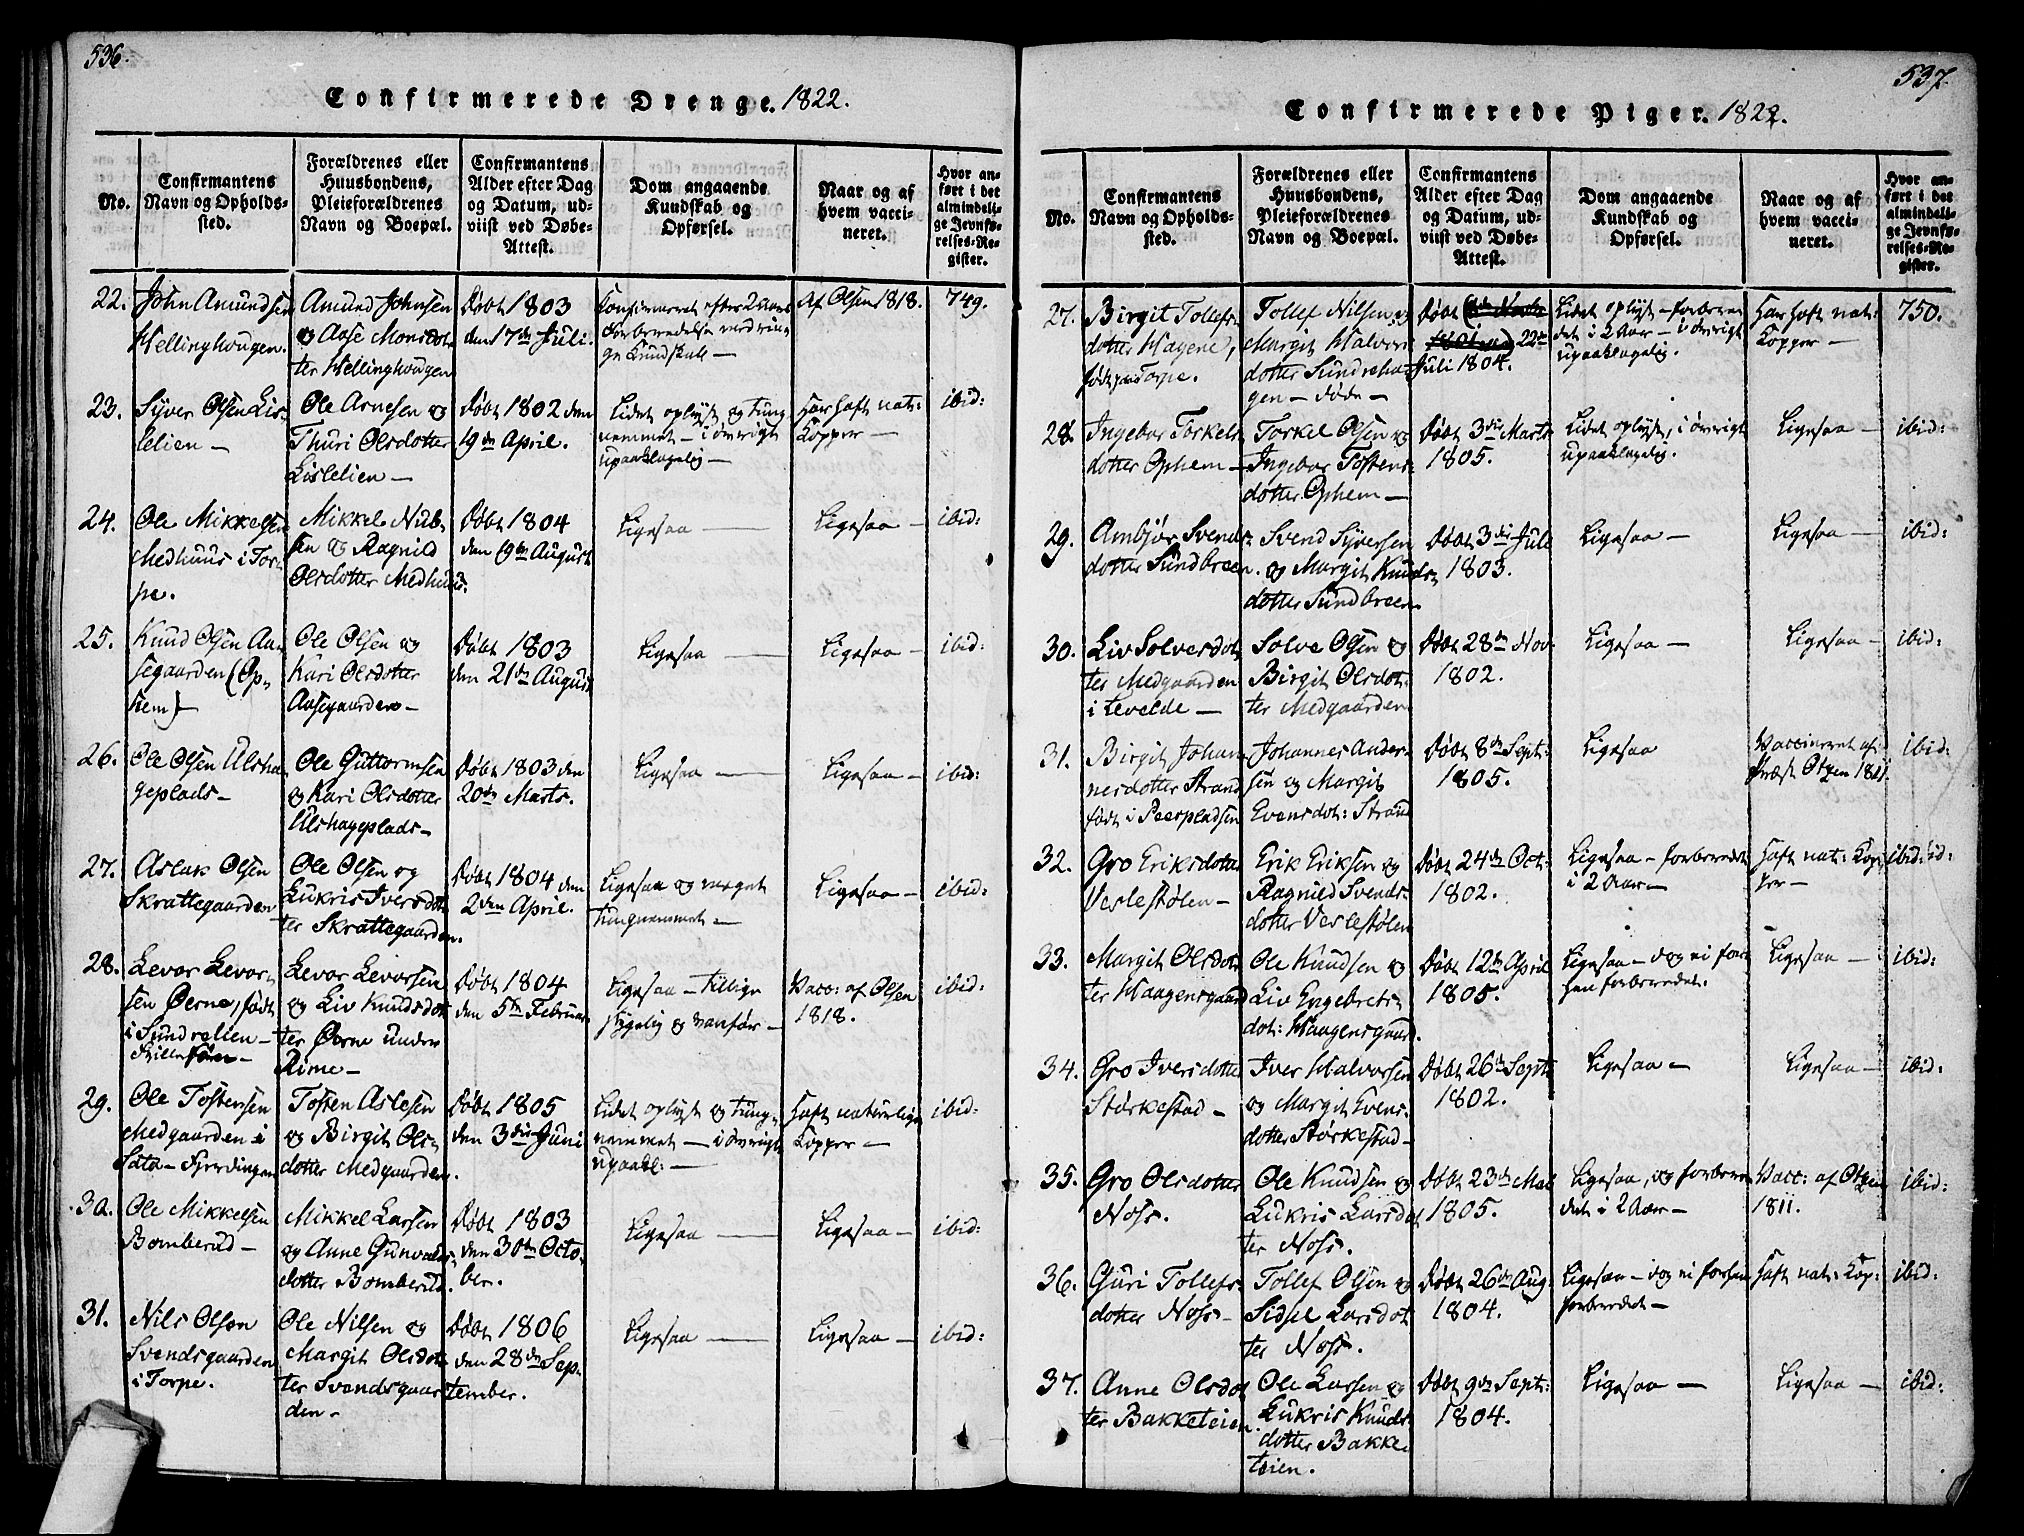 536.
Confirmerede Drenge. 1822.
No.
Confirmantens
Navn og Opholds-
sted.
Forældrenes eller
Huusbondens,
Pleieforældrenes
Navn og Boepæl.
Confirmantens
Alder efter Dag
og Datum, ud-
viist ved Døbe-
Attest.
Dom angaaende
Kundskab og
Opførsel.
Naar og af
hvem vacci-
neret.
Hvor an-
ført i det
almindeli-
ge Jevnfø-
relses-Re-
gister.
22.
John Amundsen
Hellinghougen.
Amund Johnsen
og Aase Monsdot-
ter Hellinghougen
Døbt 1803
den 17de Juli.
Confirmeret efter 2 Aars
Forberedelse med rin-
ge Kundskab —
Af Olsen 1818.
749.
23.
Syver Olsen Lis-
lelien —
Ole Arnesen og
Thuri Olsdotter
Lislelien —
Døbt 1802 den
19de April.
Lidet oplyst og tung-
nemmet — i øvrigt
upaaklagelig —
Har haft nat:
Kopper —
ibid:
24.
Ole Mikkelsen
Medhuus i Tor-
pe.
Mikkel Nub-
sen og Ragnild
Olsdotter Medhuus.
Døbt 1804
den 19de August
Ligesaa —
Ligesaa —
ibid:
25.
Knud Olsen Aa-
segaarden (Op-
hem) —
Ole Olsen og
Kari Olsdotter
Aasegaarden —
Døbt 1803
den 21de August
Ligesaa —
Ligesaa —
ibid:
26.
Ole Olsen Ulsha-
geplads —
Ole Guttormsen
og Kari Olsdotter
Ulshageplads —
Døbt 1803 den
20de Marts.
Ligesaa —
Ligesaa —
ibid:
27.
Aslak Olsen
Skrattegaarden
Ole Olsen og
Lukris Iversdot-
ter Skrattegaarden.
Døbt 1804 den
2den April.
Ligesaa og meget
tungnemmet —
Ligesaa —
ibid:
28.
Levor Levor-
sen Øerne, født
i Sundrelien —
Levor Levorsen
og Liv Knudsdot-
ter Øerne under
Rime —
Døbt 1804
den 5te Februar
Ligesaa — tillige
sygelig og vanfør —
Vacc: af Olsen
1818.
ibid:
29.
Ole Tostensen
Medgaarden i
Sata-Fjerdingen
Tosten Aslesen
og Birgit Ols-
dotter Medgaarden.
Døbt 1805
den 3die Juni
Lidet oplyst og tung-
nemmet — i øvrigt
upaakl: —
Haft naturlige
Kopper —
ibid:
30.
Ole Mikkelsen
Bomberud —
Mikkel Larsen
og Anne Gunvalds-
dotter Bomberud.
Døbt 1803
den 30te Octo-
ber.
Ligesaa —
Ligesaa —
ibid:
31.
Nils Olsen
Svendsgaarden
i Torpe.
Ole Nilsen og
Margit Olsdot-
ter Svendsgaar-
den —
Døbt 1806
den 28de Sep-
tember.
Ligesaa —
Ligesaa —
ibid:
537.
Confirmerede Piger. 1822.
No.
Confirmantens
Navn og Opholds-
sted.
Forældrenes eller
Huusbondens,
Pleieforældrenes
Navn og Boepæl.
Confirmantens
Alder efter Dag
og Datum, ud-
viist ved Døbe-
Attest.
Dom angaaende
Kundskab og
Opførsel.
Naar og af
hvem vacci-
neret.
Hvor an-
ført i det
almindeli-
ge Jevnfø-
relses-Re-
gister.
27.
Birgit Tollefs-
dotter Hagene,
født paa Torpe.
Tollef Nilsen og
Margit Halvors-
dotter Sundreha-
gen — døde —
Døbt 22de
Juli 1804.
Lidet oplyst — forbere-
det i 2 Aar — i øvrigt
upaaklagelig.
Har haft nat:
Kopper —
750.
28.
Ingebor Torkels-
dotter Ophem —
Torkel Olsen og
Ingebor Tostens-
dotter Ophem —
Døbt 3die Marts
1805.
Lidet oplyst, i øvrigt
upaaklagelig.
Ligesaa —
ibid:
29.
Ambjør Svends-
dotter Sundbreen.
Svend Syversen
og Margit Knuds-
dotter Sundbreen
Døbt 3die Juli
1803.
Ligesaa —
Ligesaa —
ibid:
30.
Liv Solvesdot-
ter Medgaarden
i Levelde —
Solve Olsen og
Birgit Olsdot-
ter Medgaarden
Døbt 28de Nov:
1802.
Ligesaa —
Ligesaa —
ibid:
31.
Birgit Johan-
nesdotter Strand
født i Peerpladsen
Johannes Ander-
sen og Margit
Evensdot: Strand
Døbt 8de Sept:
1805.
Ligesaa
Vaccineret af
Præst Otzen 1811.
ibid:
32.
Gro Eriksdotter
Veslestølen —
Erik Eriksen og
Ragnild Svends-
dotter Veslestølen
Døbt 24de Oct:
1802.
Ligesaa — forberedet
i 2 Aar —
Haft nat: Kop-
per —
ibid:
33.
Margit Olsdot-
ter Haagensgaard
Ole Knudsen og
Liv Engebrets-
dot: Haagensgaard.
Døbt 12te April
1805.
Ligesaa — dog ei for-
hen forberedet.
Ligesaa —
ibid:
34.
Gro Iversdotter
Størkestad —
Iver Halvorsen
og Margit Evens-
dotter Størkestad —
Døbt 26de Sept:
1802.
Ligesaa —
Ligesaa —
ibid:
35.
Gro Olsdotter
Noss.
Ole Knudsen og
Lukris Larsdot-
ter Noss.
Døbt 23de Mai
1805.
Ligesaa, og forbere-
det i 2 Aar —
Vacc: af Otzen
1811.
ibid:
36.
Guri Tollefs-
dotter Noss —
Tollef Olsen og
Sidsel Larsdot-
ter Noss.
Døbt 26de Aug:
1804.
Ligesaa — dog ei forhen
forberedet —
Haft nat: Kop:
ibid:
37.
Anne Olsdot-
ter Bakketeien.
Ole Larsen og
Lukris Knuds-
dotter Bakke-
teien.
Døbt 9de Sept:
1804.
Ligesaa —
Ligesaa —
ibid: